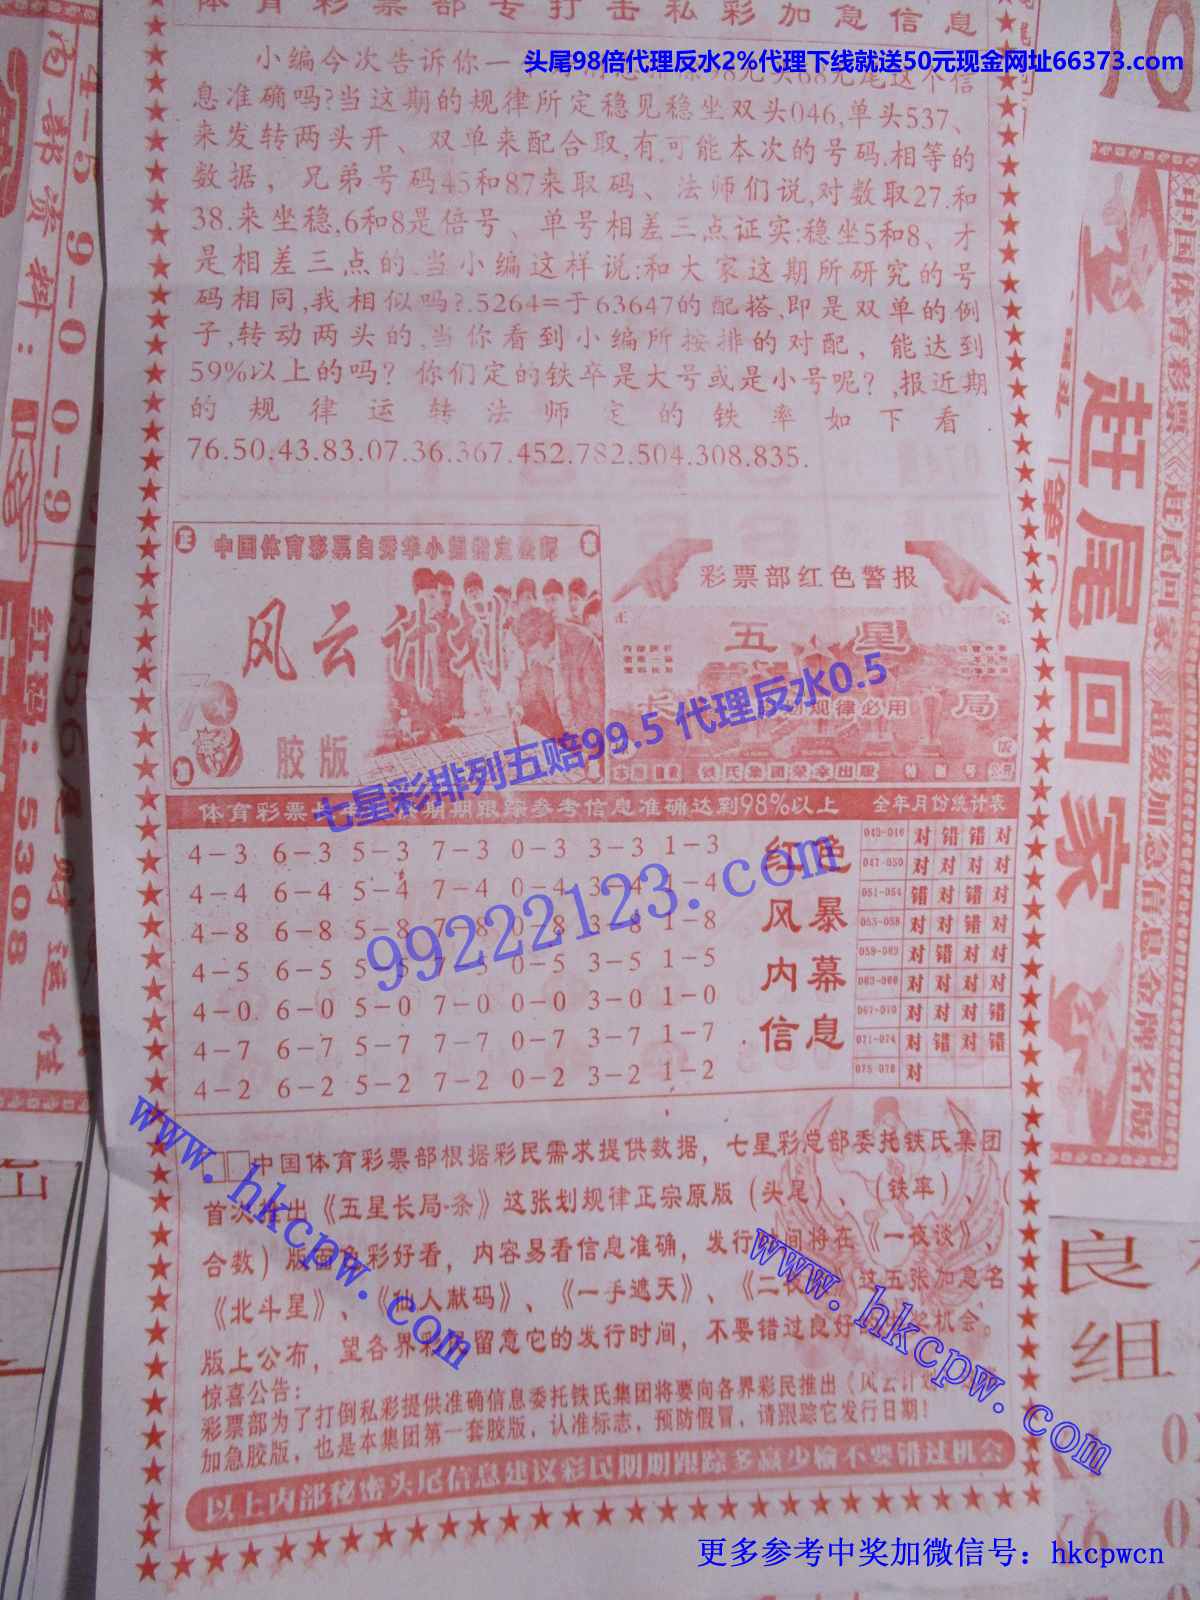 体育彩票部专打击私彩加急信息
头尾98倍代理反水2%代理下线就送50元现金网址66373.com
小编今次告诉你一
息准确吗?当这期的规律所定稳见稳坐双头046,单头537、
来发转两头开、双单来配合取,有可能本次的号码,相等的
数据，兄弟号码45和87来取码、法师们说,对数取27.和
38.来坐稳,6和8是倍号、单号相差三点证实:稳坐5和8、才
是相差三点的.当小编这样说:和大家这期所研究的号
码相同,我相似吗?.5264=于63647的配搭,即是双单的例
子,转动两头的,当你看到小编所按排的对配，能达到
59%以上的吗？你们定的铁卒是大号或是小号呢？,报近期
的规律运转法师定的铁率如下看.
76.50.43.83.07.36.367.452.782.504.308.835.
风云计划
胶版
彩票部红色警报
正 宗
五 星
长 局
规律必用
铁氏集团荣幸出版
七星彩排列五赔99.5 代理反水0.5
期期跟踪参考信息准确达到98%以上 全年月份统计表
4–3 6–3 5–3 7–3 0–3 3–3 1–3
4–4 6–4 5–4 7–4 0–4 3–4 1–4
4–8 6–8 5–8 7–8 0–8 3–8 1–8
4–5 6–5 5–5 7–5 0–5 3–5 1–5
4–0. 6–0 5–0 7–0 0–0 3–0 1–0
4–7 6–7 5–7 7–7 0–7 3–7 1–7
4–2 6–2 5–2 7–2 0–2 3–2 1–2
红色
风暴
内幕
信息
043-046 对 错 错 对
047-050 对 对 对 对
051-054 错 对 错 对
055-058 对 对 错 对
059-062 对 错 对 对
063-066 对 对 对 对
067-070 对 对 对 错
071-074 对 错 对 错
075-078 对
99222123.com
中国体育彩票部根据彩民需求提供数据，七星彩总部委托铁氏集团
首次推出《五星长局-条》这张划规律正宗原版（头尾）、（铁率）、（
合数）版面色彩好看，内容易看信息准确，发行时间将在《一夜谈》、
《北斗星》、《仙人献码》、《一手遮天》、《二 这五张加急名
版上公布，望各界彩民留意它的发行时间，不要错过良好的 机会。
惊喜公告：
彩票部为了打倒私彩提供准确信息委托铁氏集团将要向各界彩民推出《风云计划
加急胶版，也是本集团第一套胶版，认准标志，预防假冒，请跟踪它发行日期！
以上内部秘密头尾信息建议彩民期期跟踪多赢少输不要错过机会
www.hkcpw.com
www.hkcpw.com
更多参考中奖加微信号：hkcpwcn
4–59–00–9
内部资料：
红码：5308
赶尾回家
中国体育彩票《赶尾回家》超级加急信息金牌名版
良
组